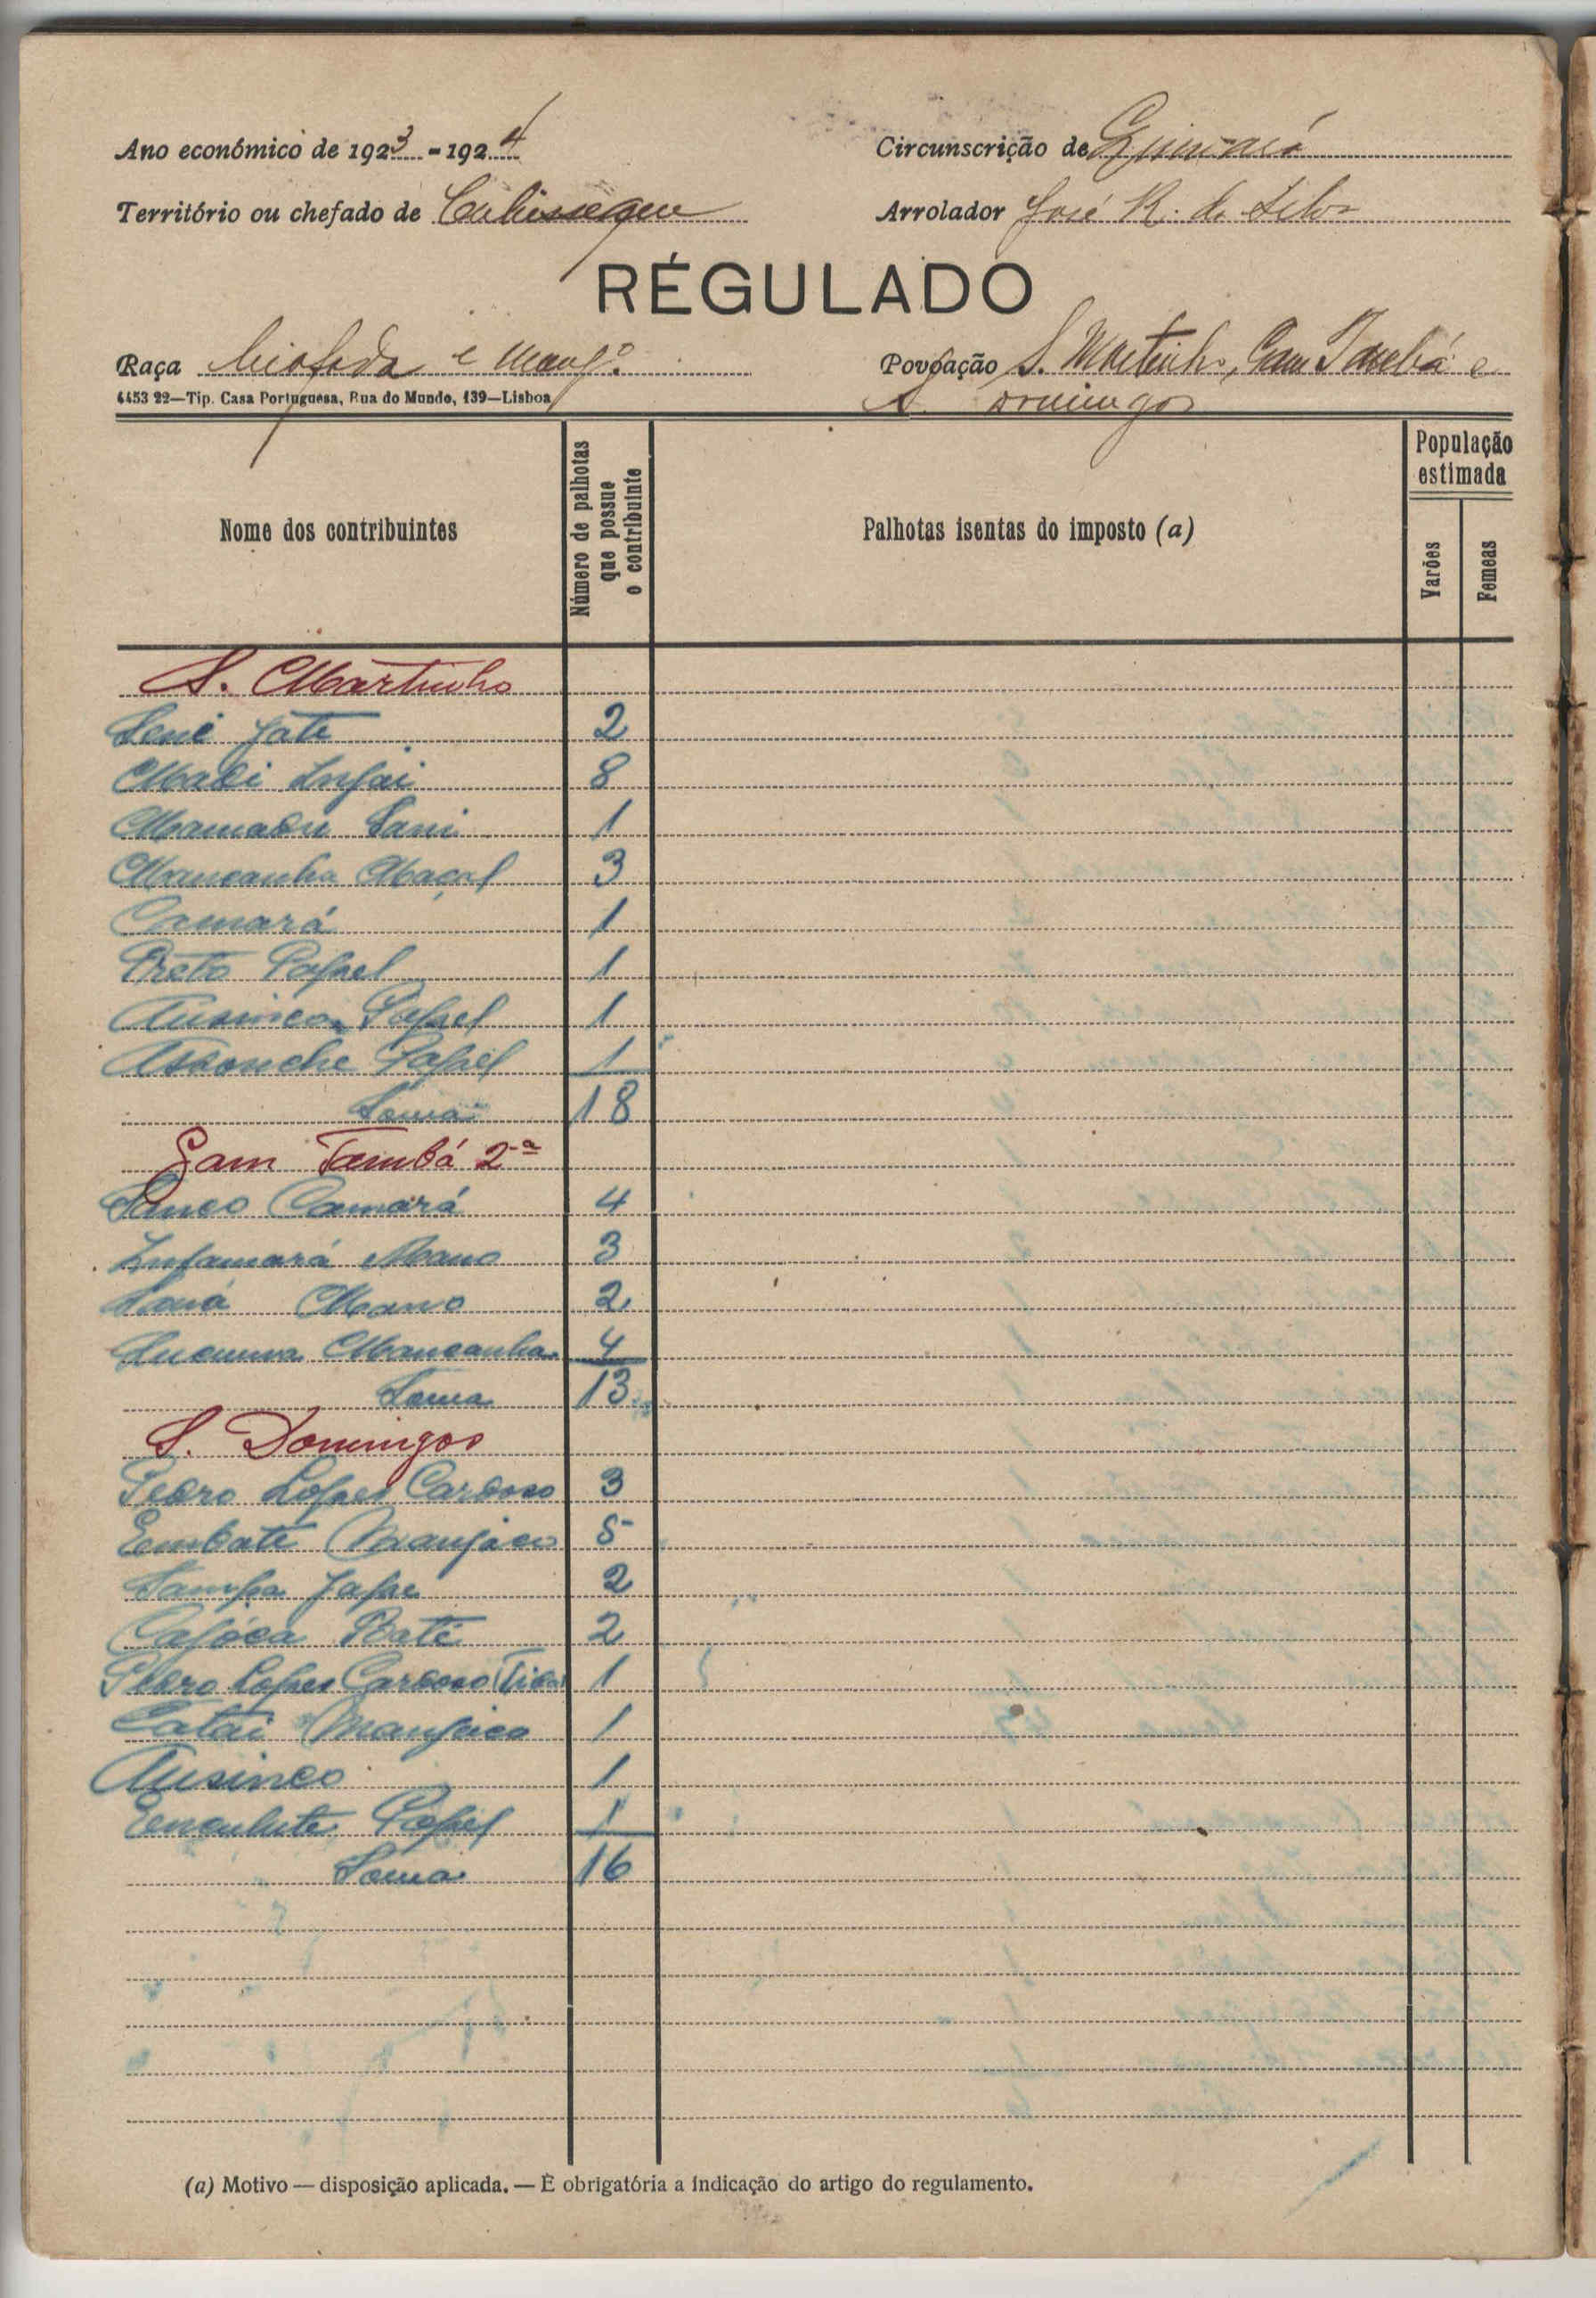 Ano económico de 1923 - 1924
Circunscrição de
Território ou chefado de Cubisseque
Arrolador José R. da Silva
RÉGULADO
Raça biafada e manj.º
Povoação S. Martinho, Gam Tambá e
S. Domingos
4453 22—Tip. Casa Portuguesa, Rua do Mundo, 139—Lisboa
Nome dos contribuintes
Número de palhotas que possue o contribuinte
Palhotas isentas do imposto (a)
População estimada
Varões
Femeas
S. Martinho
Seni Jate 2
Madi Infai 8
Mamadu Sani 1
Mancanha Maçal 3
Camará 1
Preto Papel 1
Ausinco Papel 1
Papel 1
Soma 18
Gam Tambá 2ª
Sanco Camará 4
Infamará Mano 3
Mano 2
Mancanha 4
Soma 13
S. Domingos
Pedro Lopes Cardoso 3
Embate Manjaco 5
Sampa Jape 2
Cajóca Bati 2
Pedro Lopes Cardoso 1
Catai Manjaco 1
Ausinco 1
Papel 1
Soma 16
(a) Motivo — disposição aplicada. — É obrigatória a indicação do artigo do regulamento.